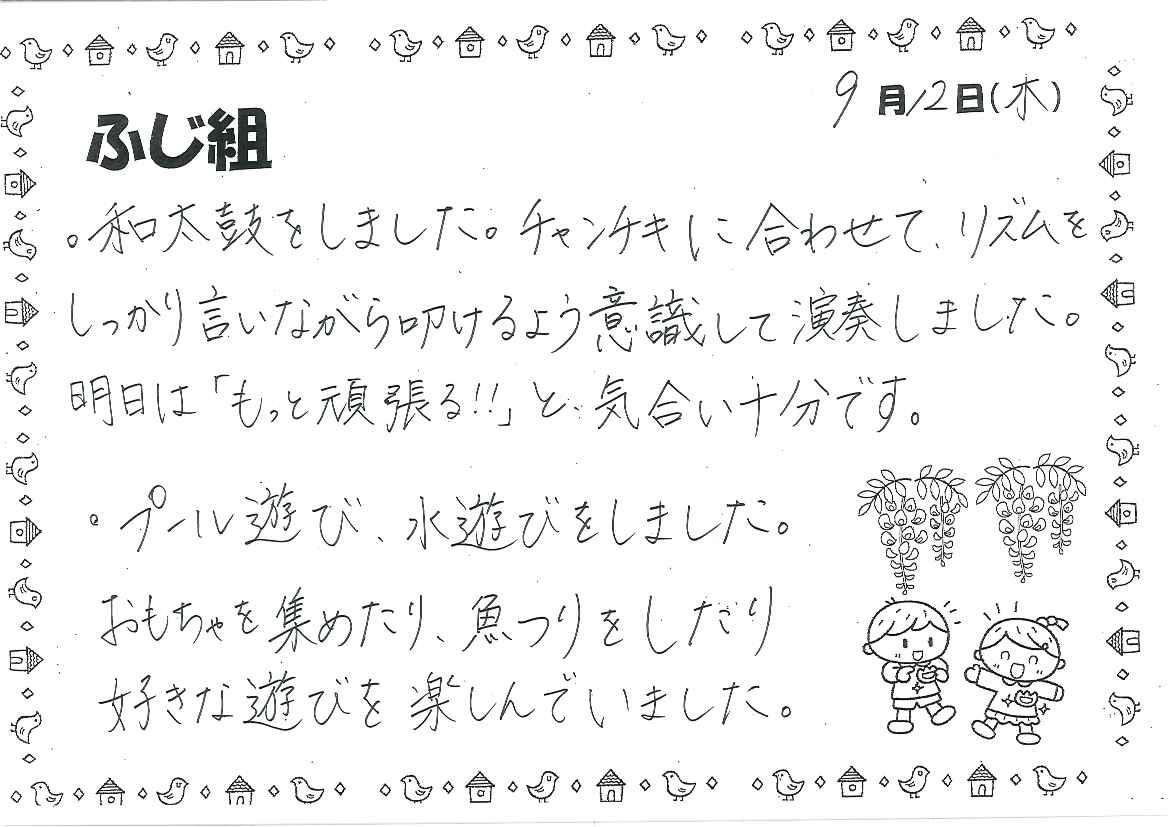 9月12日(木)
ふじ組
。和太鼓をしました。チャンチキに合わせて、リズムを
しっかり言いながら叩けるよう意識して演奏しました。
明日は「もっと頑張る!!」と、気合い十分です。
。プール遊び、水遊びをしました。
おもちゃを集めたり、魚つりをしたり
好きな遊びを楽しんでいました。